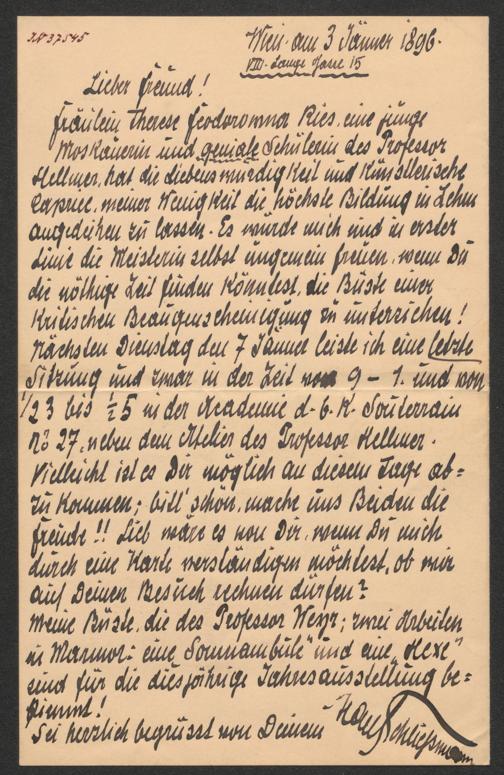 I.N 37545
Wien am 3 Jänner 1896.
VIII. Lange Gasse 15
Lieber Freund!
Fräulein Therese Feodorowna Ries, eine junge
Moskauerin und geniale Schülerin des Professor
Hellmer, hat die Liebenswürdigkeit und künstlerische
Caprice, meiner Wenigkeit die höchste Bildung in Lehm
angedeihen zu lassen. Es würde mich und in erster
Linie die Meisterin selbst ungemein freuen, wenn Du
die nöthige Zeit finden könntest, die Büste einer
kritischen Beaugenscheinigung zu unterziehen!
Nächsten Dienstag den 7 Jänner leiste ich eine letzte
Sitzung und zwar in der Zeit von 9 – 1. und von
1/2 3 bis 1/2 5 in der Academie d. b. K. Souterrain
No 27, neben dem Atelier des Professor Hellmer.
Vielleicht ist es Dir möglich an diesem Tage ab=
zu kommen; bitt' schön, mache uns Beiden die
Freude!! Lieb wäre es von Dir, wenn Du mich
durch eine Karte verständigen möchtest, ob wir
auf Deinen Besuch rechnen dürfen?
Meine Büste, die des Professor Weyr; zwei Arbeiten
in Marmor: eine „Somnambule" und eine „Hexe"
sind für die diesjährige Jahresausstellung be=
stimmt!
Sei herzlich begrüsst von Deinem
Hans Schließmann